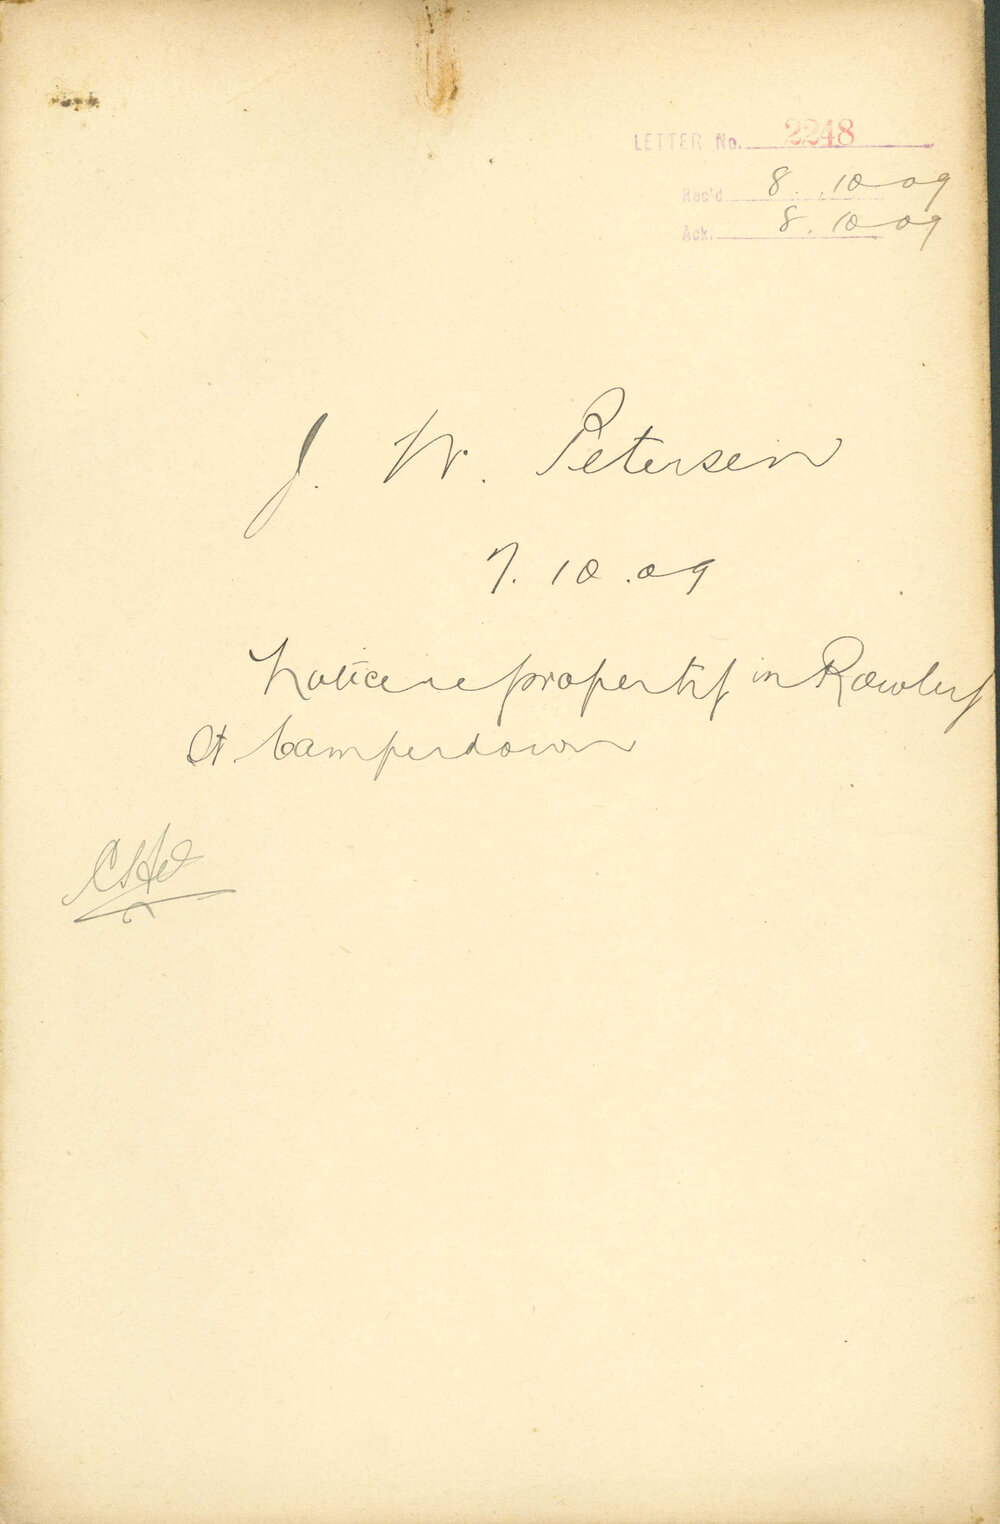 LETTER No. 2248
Rec'd 8.10.09
Ack. 8.10.09
J. W. Petersen
7.10.09
Notice re property in Rowley
St Camperdown